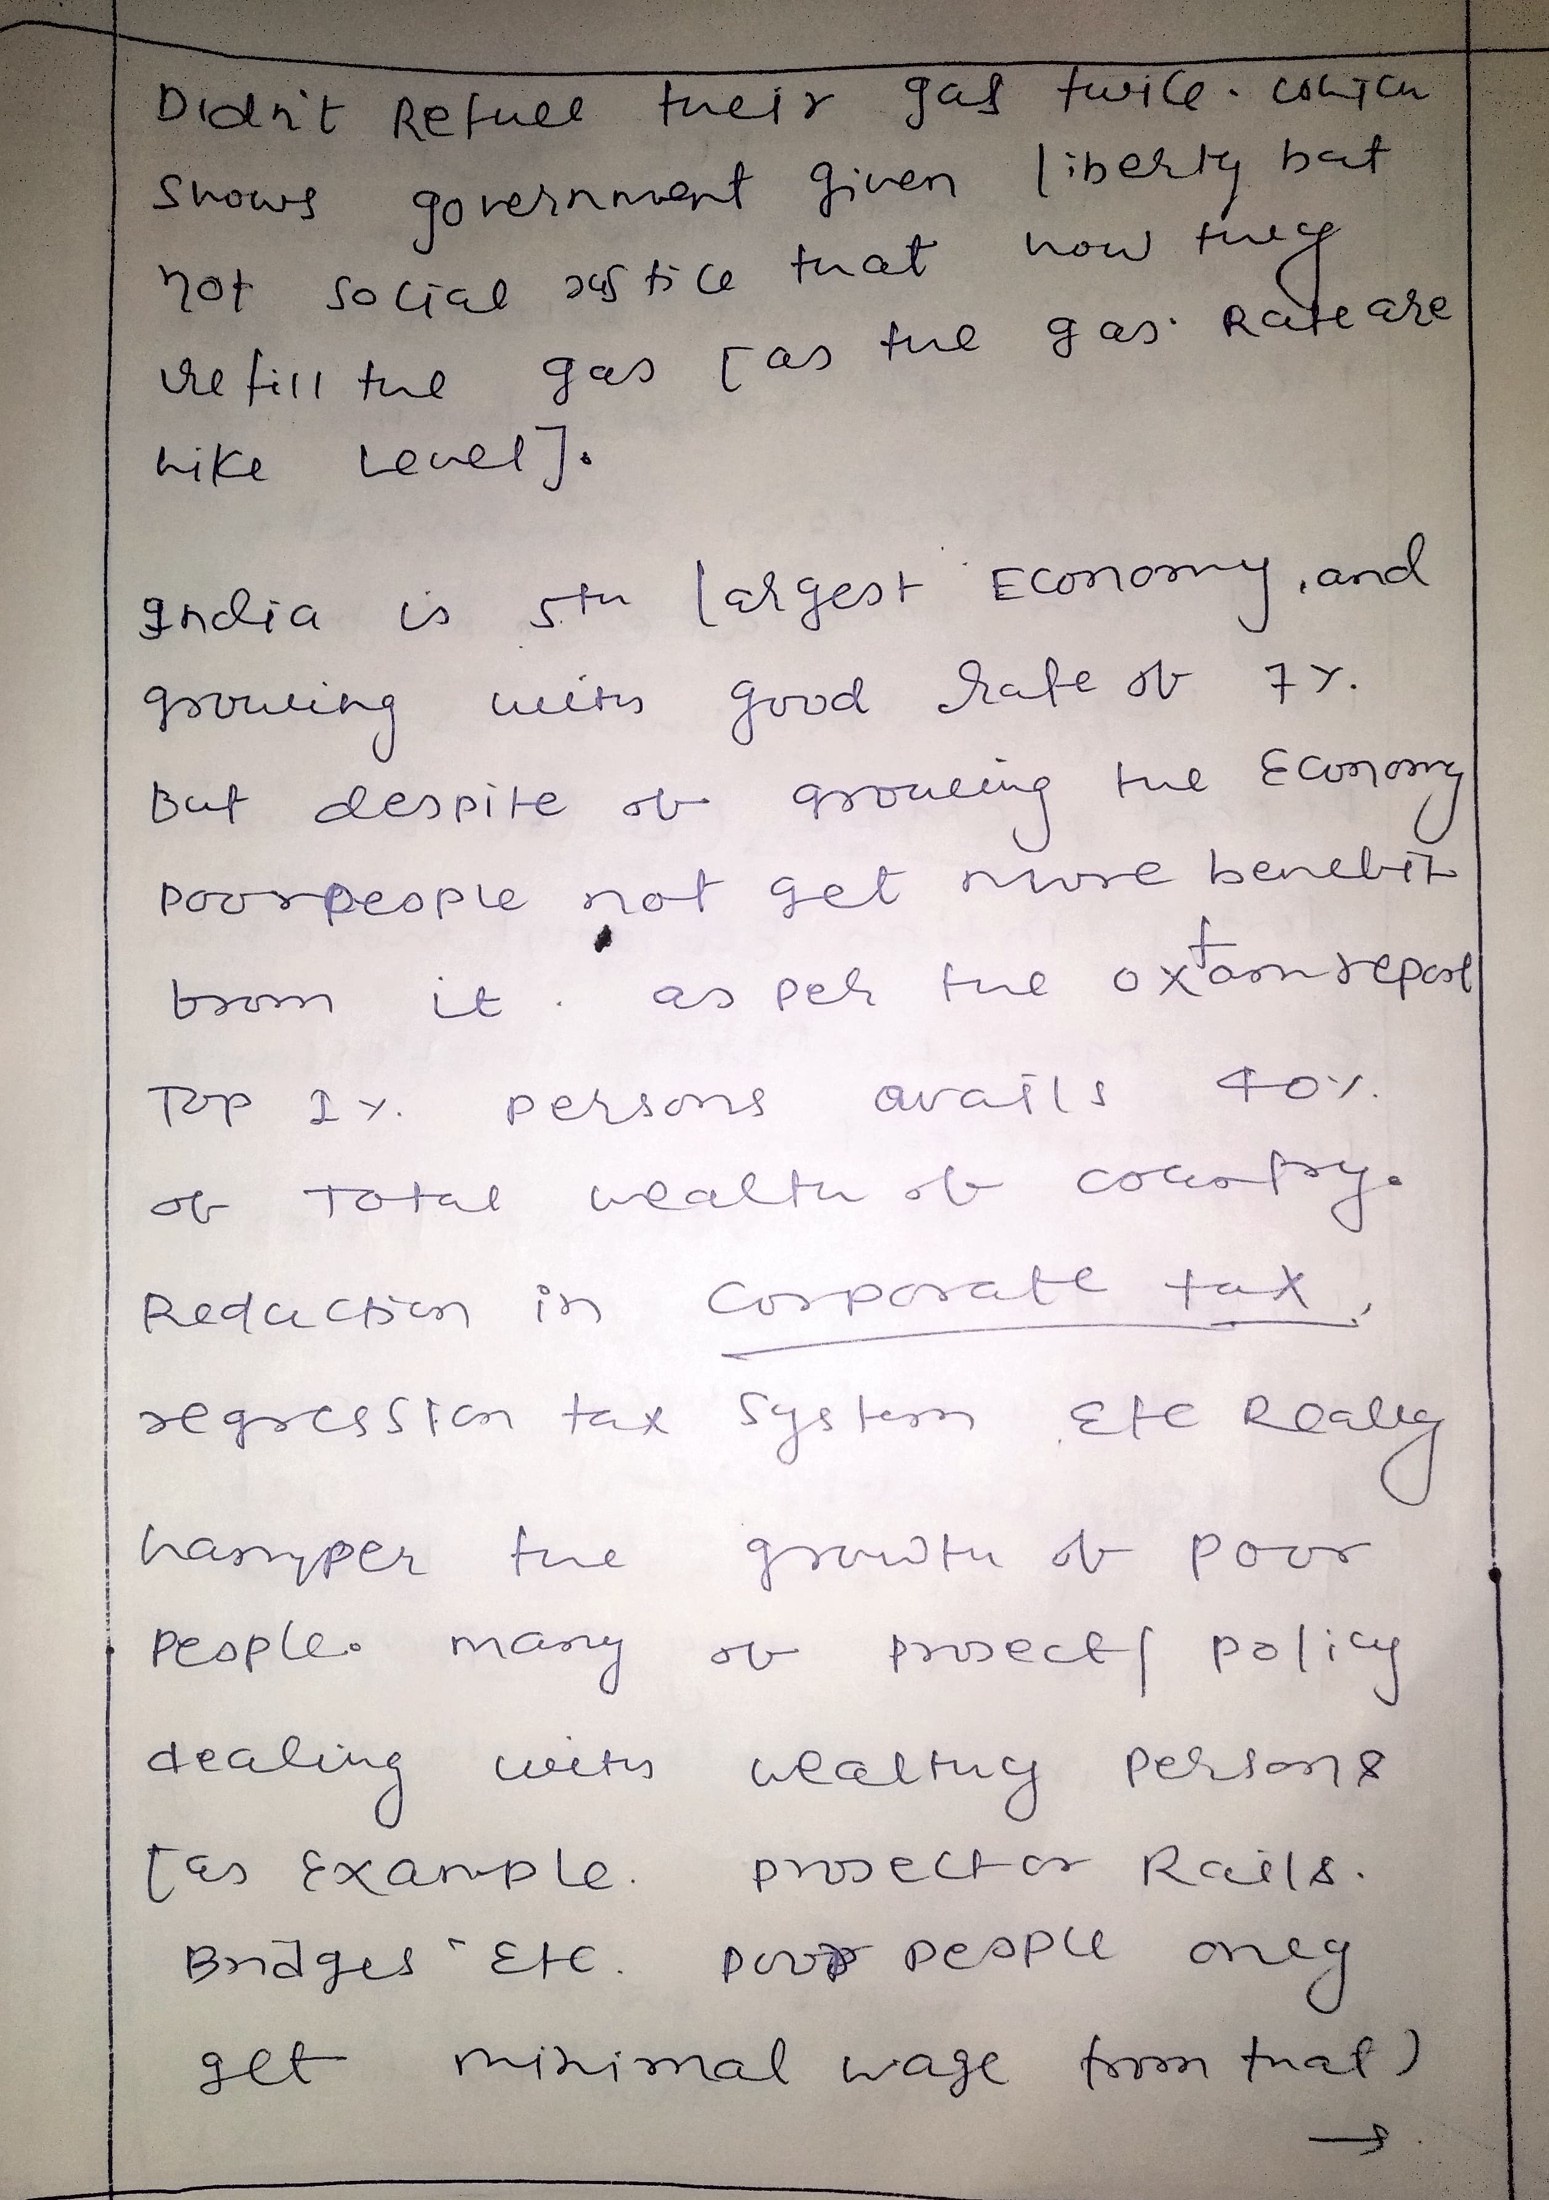 Didn't Refuel their gas twice. which
shows government given liberty but
not social justice that how they
refill the gas [as the gas Rate are
hike level].
India is 5th largest Economy, and
growing with good rate of 7%.
But despite of growing the Economy
poor people not get more benefit
from it. as per the oxfam report
Top 1% persons avails 40%
of Total wealth of country.
Reduction in corporate tax,
regression tax system Etc Really
hamper the growth of poor
people. many of project/ policy
dealing with wealthy persons
[as Example. project or Rails.
Bridges Etc. poor people only
get minimal wage from that)
→